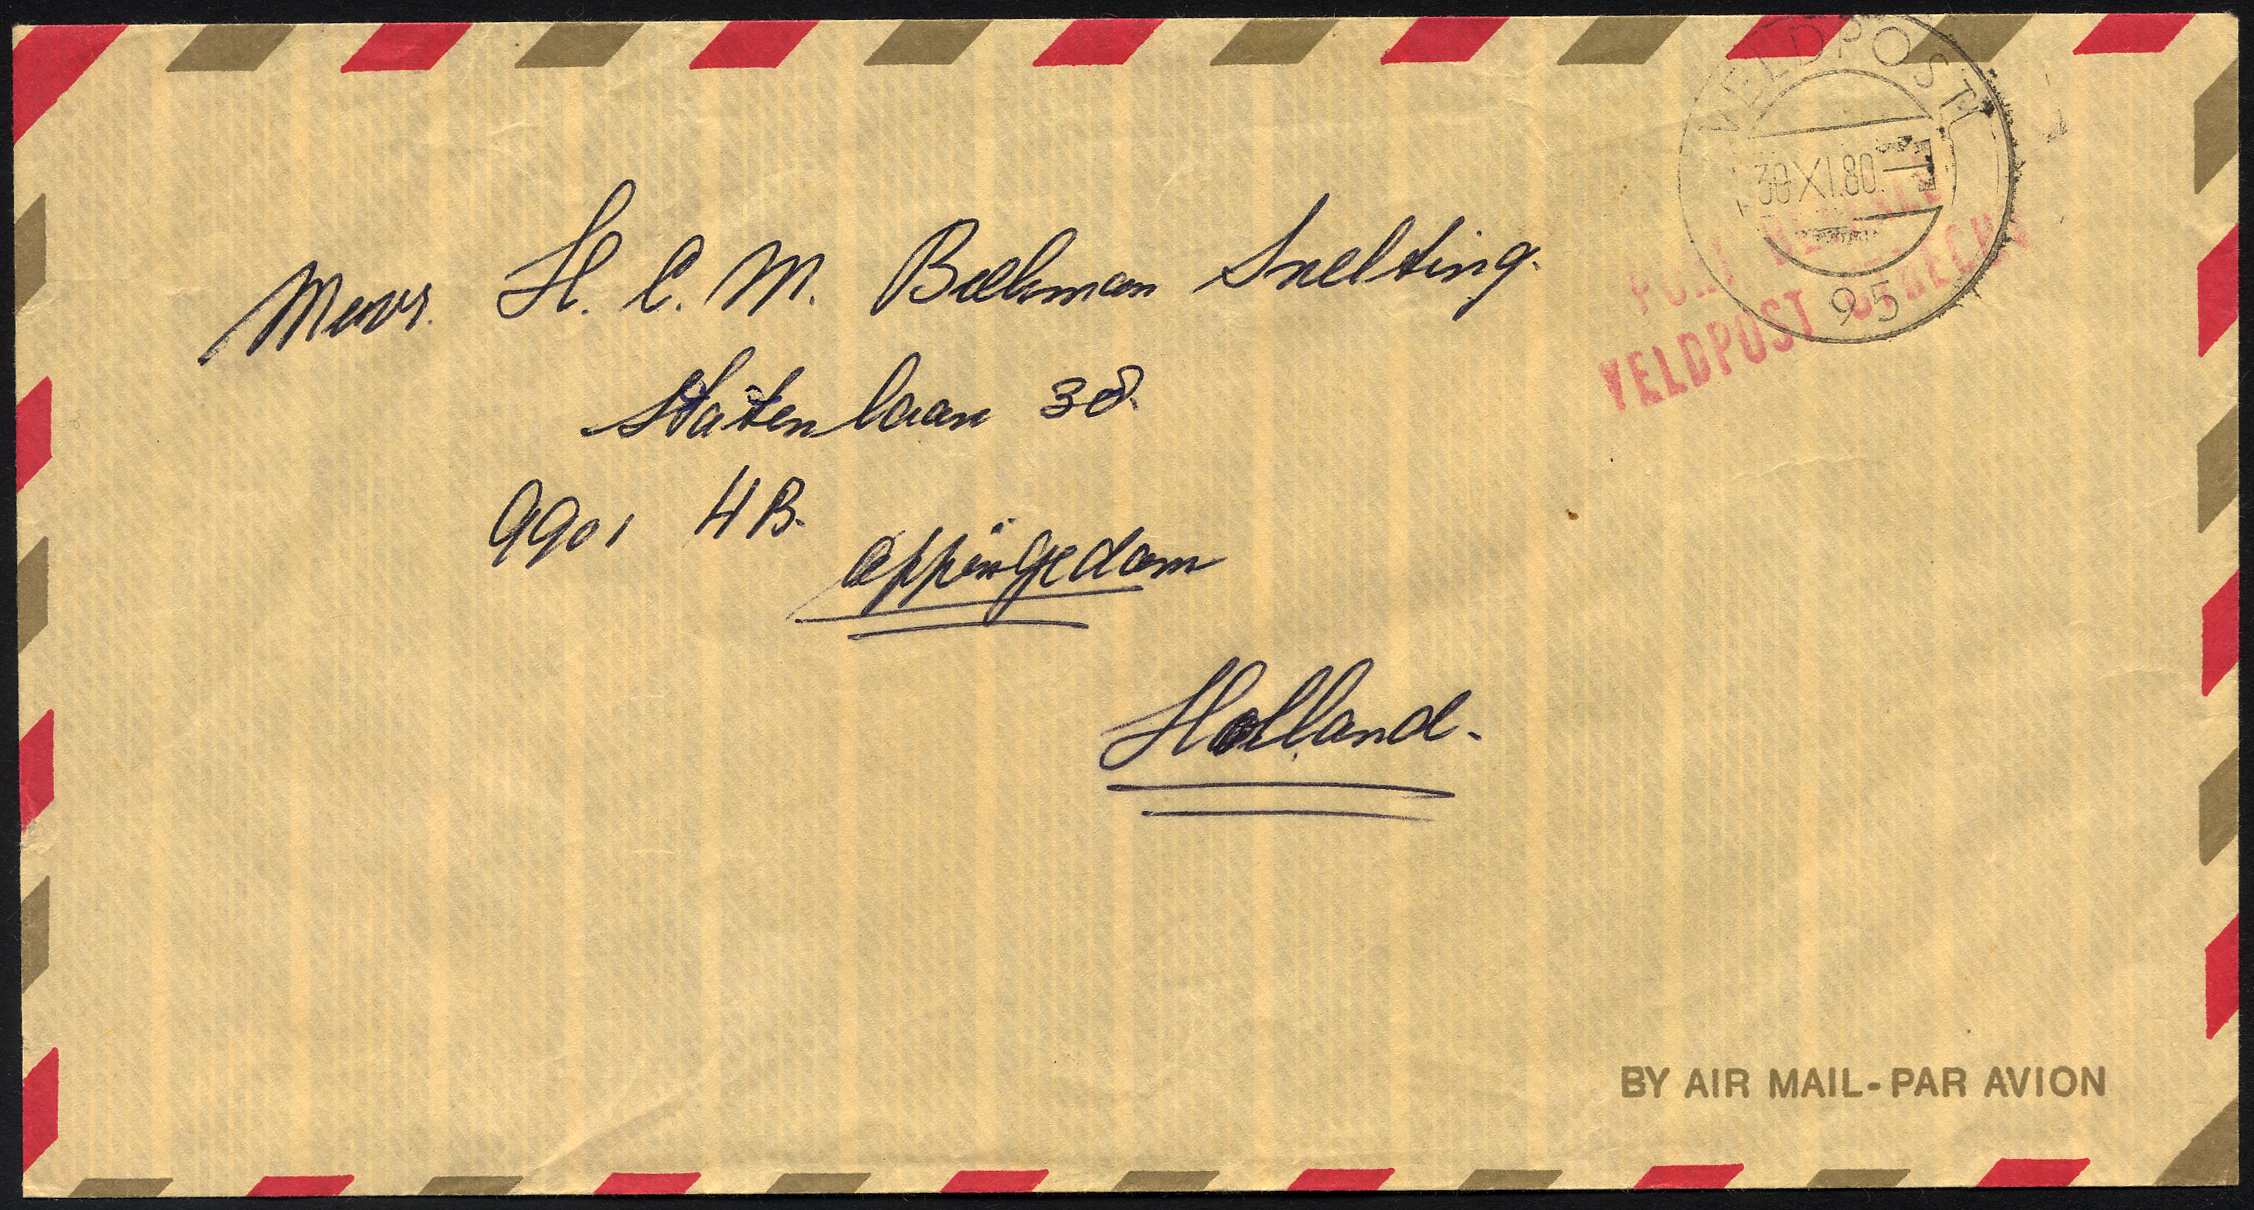 VELDPOST
30 XI.80
95
PORT BETAALD
VELDPOST UTRECHT
Mevr. H. C. M. Beekman Snelting.
Statenlaan 38.
9901 HB.
Appingedam
Holland.
BY AIR MAIL-PAR AVION